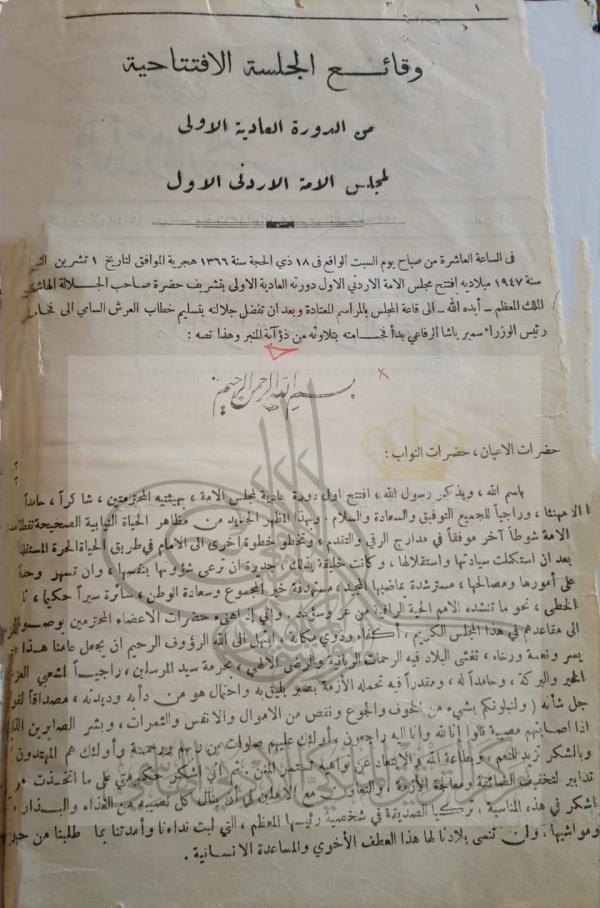 ١
وقائع الجلسة الافتتاحية
من الدورة العادية الاولى
لمجلس الامة الاردني الاول
في الساعة العاشرة من صباح يوم السبت الواقع في ١٨ ذي الحجة سنة ١٣٦٦ هجرية الموافق لتاريخ ١ تشرين
سنة ١٩٤٧ ميلاديه افتتح مجلس الامة الاردني الاول دورته العادية الاولى بتشريف حضرة صاحب الجلالة
الملك المعظم - أيده الله - الى قاعة المجلس بالمراسم المعتادة وبعد ان تفضل جلالته بتسليم خطاب العرش السامي الى
رئيس الوزراء سمير باشا الرفاعي بدأ فخامته بتلاوته من ذؤآبة المنبر وهذا نصه :
بسم الله الرحمن الرحيم
حضرات الاعيان ، حضرات النواب :
باسم الله ، وبذكر رسول الله ، افتتح اول دورة عادية لمجلس الامة ، بهيئتيه المحترمتين ، شاكراً ، حامداً
مهنئا ، وراجياً للجميع التوفيق والسعادة والسلام . وبهذا المظهر الجديد من مظاهر الحياة النيابية الصحيحة
الامة شوطاً آخر موفقاً في مدارج الرقي والتقدم ، وتخطو خطوة أخرى الى الامام في طريق الحياة الحرة
بعد ان استكملت سيادتها واستقلالها ، وكانت خليقة بذلك ، جديرة ان ترعى شؤونها بنفسها ، وان تسهر
على أمورها ومصالحها ، مسترشدة بماضيها المجيد ، مستهدفة خير المجموع وسعادة الوطن ، سائرة سيراً حكيما ،
الخطى ، نحو ما تنشده الامم الحية الراقية من عز وسؤدد . واني إذ أهنىء حضرات الاعضاء المحترمين
الى مقاعدهم في هذا المجلس الكريم ، أكفاء وذوي مكانة ، ابتهل الى الله الرؤوف الرحيم ان يجعل عامنا هذا
يسر ونعمة ورخاء ، تغشى البلاد فيه الرحمات الربانية والرضى الالهي ، بحرمة سيد المرسلين ، راجياً لشعبي
الخير والبركة ، وحامداً له ، ومقدراً فيه تحمله الأزمة بصبر يليق به واحتمال هو من دأبه وديدنه ، مصداقاً
جل شأنه ( ولنبلونكم بشيء من الخوف والجوع ونقص من الاموال والانفس والثمرات ، وبشر الصابرين
اذا اصابتهم مصيبة قالوا إنا لله وإنا اليه راجعون ، أولئك عليهم صلوات من ربهم ورحمة وأولئك هم المهتدون
وبالشكر تزيد النعم ، وبطاعة الله والابتعاد عن نواهيه تستمر المنن . ثم اني أشكر حكومتي على ما اتخذت
تدابير لتخفيف الضائقة ومعالجة الأزمة ، والتعاون مع الاهلين في أن ينال كل نصيبه من الغذاء والبذار ،
اشكر في هذه المناسبة ، تركيا الصديقة في شخصية رئيسها المعظم ، التي لبت نداءنا وأمدتنا بما طلبنا من
ومواشيها ، ولن تنسى بلادنا لها هذا العطف الأخوي والمساعدة الانسانية .